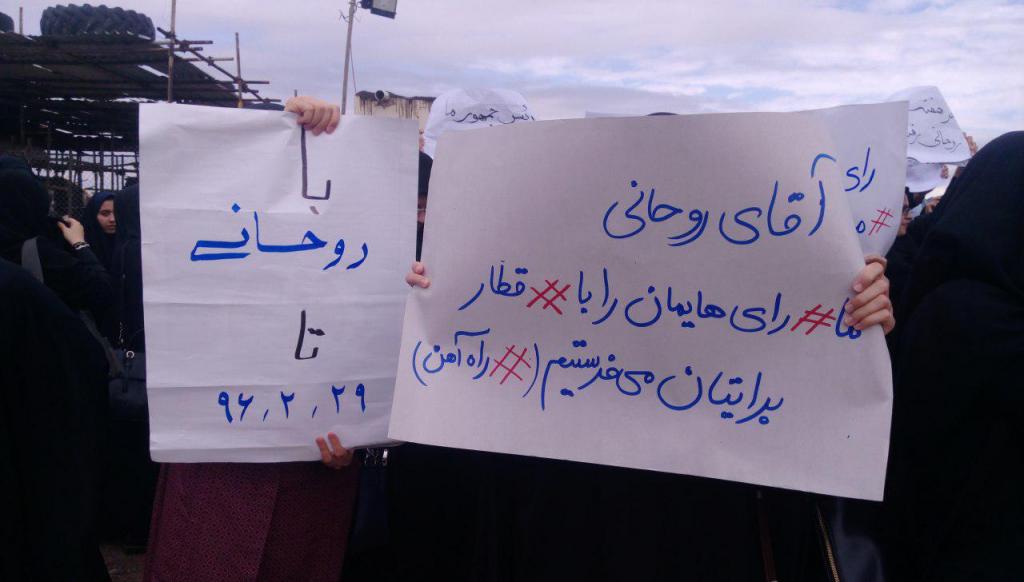 آقای روحانی
ما# رای هایمان را با# قطار
برایتان می‌فرستیم (# راه آهن)
با
روحانی
تا
۹۶٫۲٫۲۹
رای
#
جمهور ما
روحانی